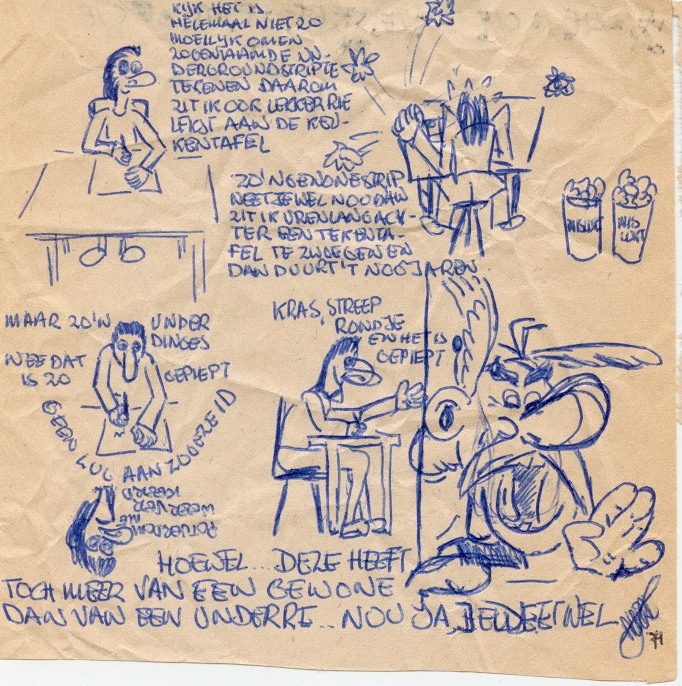 KIJK HET IS
HELEMAAL NIET ZO
MOEILIJK OM EN
ZOGENAAMDE UN-
DERGROUNDSTRIP TE
TEKENEN DAAROM
ZIT IK OOK LEKKER RE
LEKST AAN DE KEU-
KENTAFEL
ZO'N GEWONE STRIP
WEET JE WEL NOU DAN
ZIT IK URENLANG ACH-
TER EEN TEKENTA-
FEL TE ZWOEGEN EN
DAN DUURT 'T NOG JAREN
MISLUKT
MIS
LUKT
MAAR ZO'N UNDER
DINGES
WEE DAT
IS ZO GEPIEPT
GEEN LUL AAN ZOGEZEID
KRAS, STREEP
RONDJE
EN HET IS
GEPIEPT
HOEWEL... DEZE HEEFT
TOCH MEER VAN EEN GEWONE
DAN VAN EEN UNDERRE.. NOU JA, JE WEET WEL
74